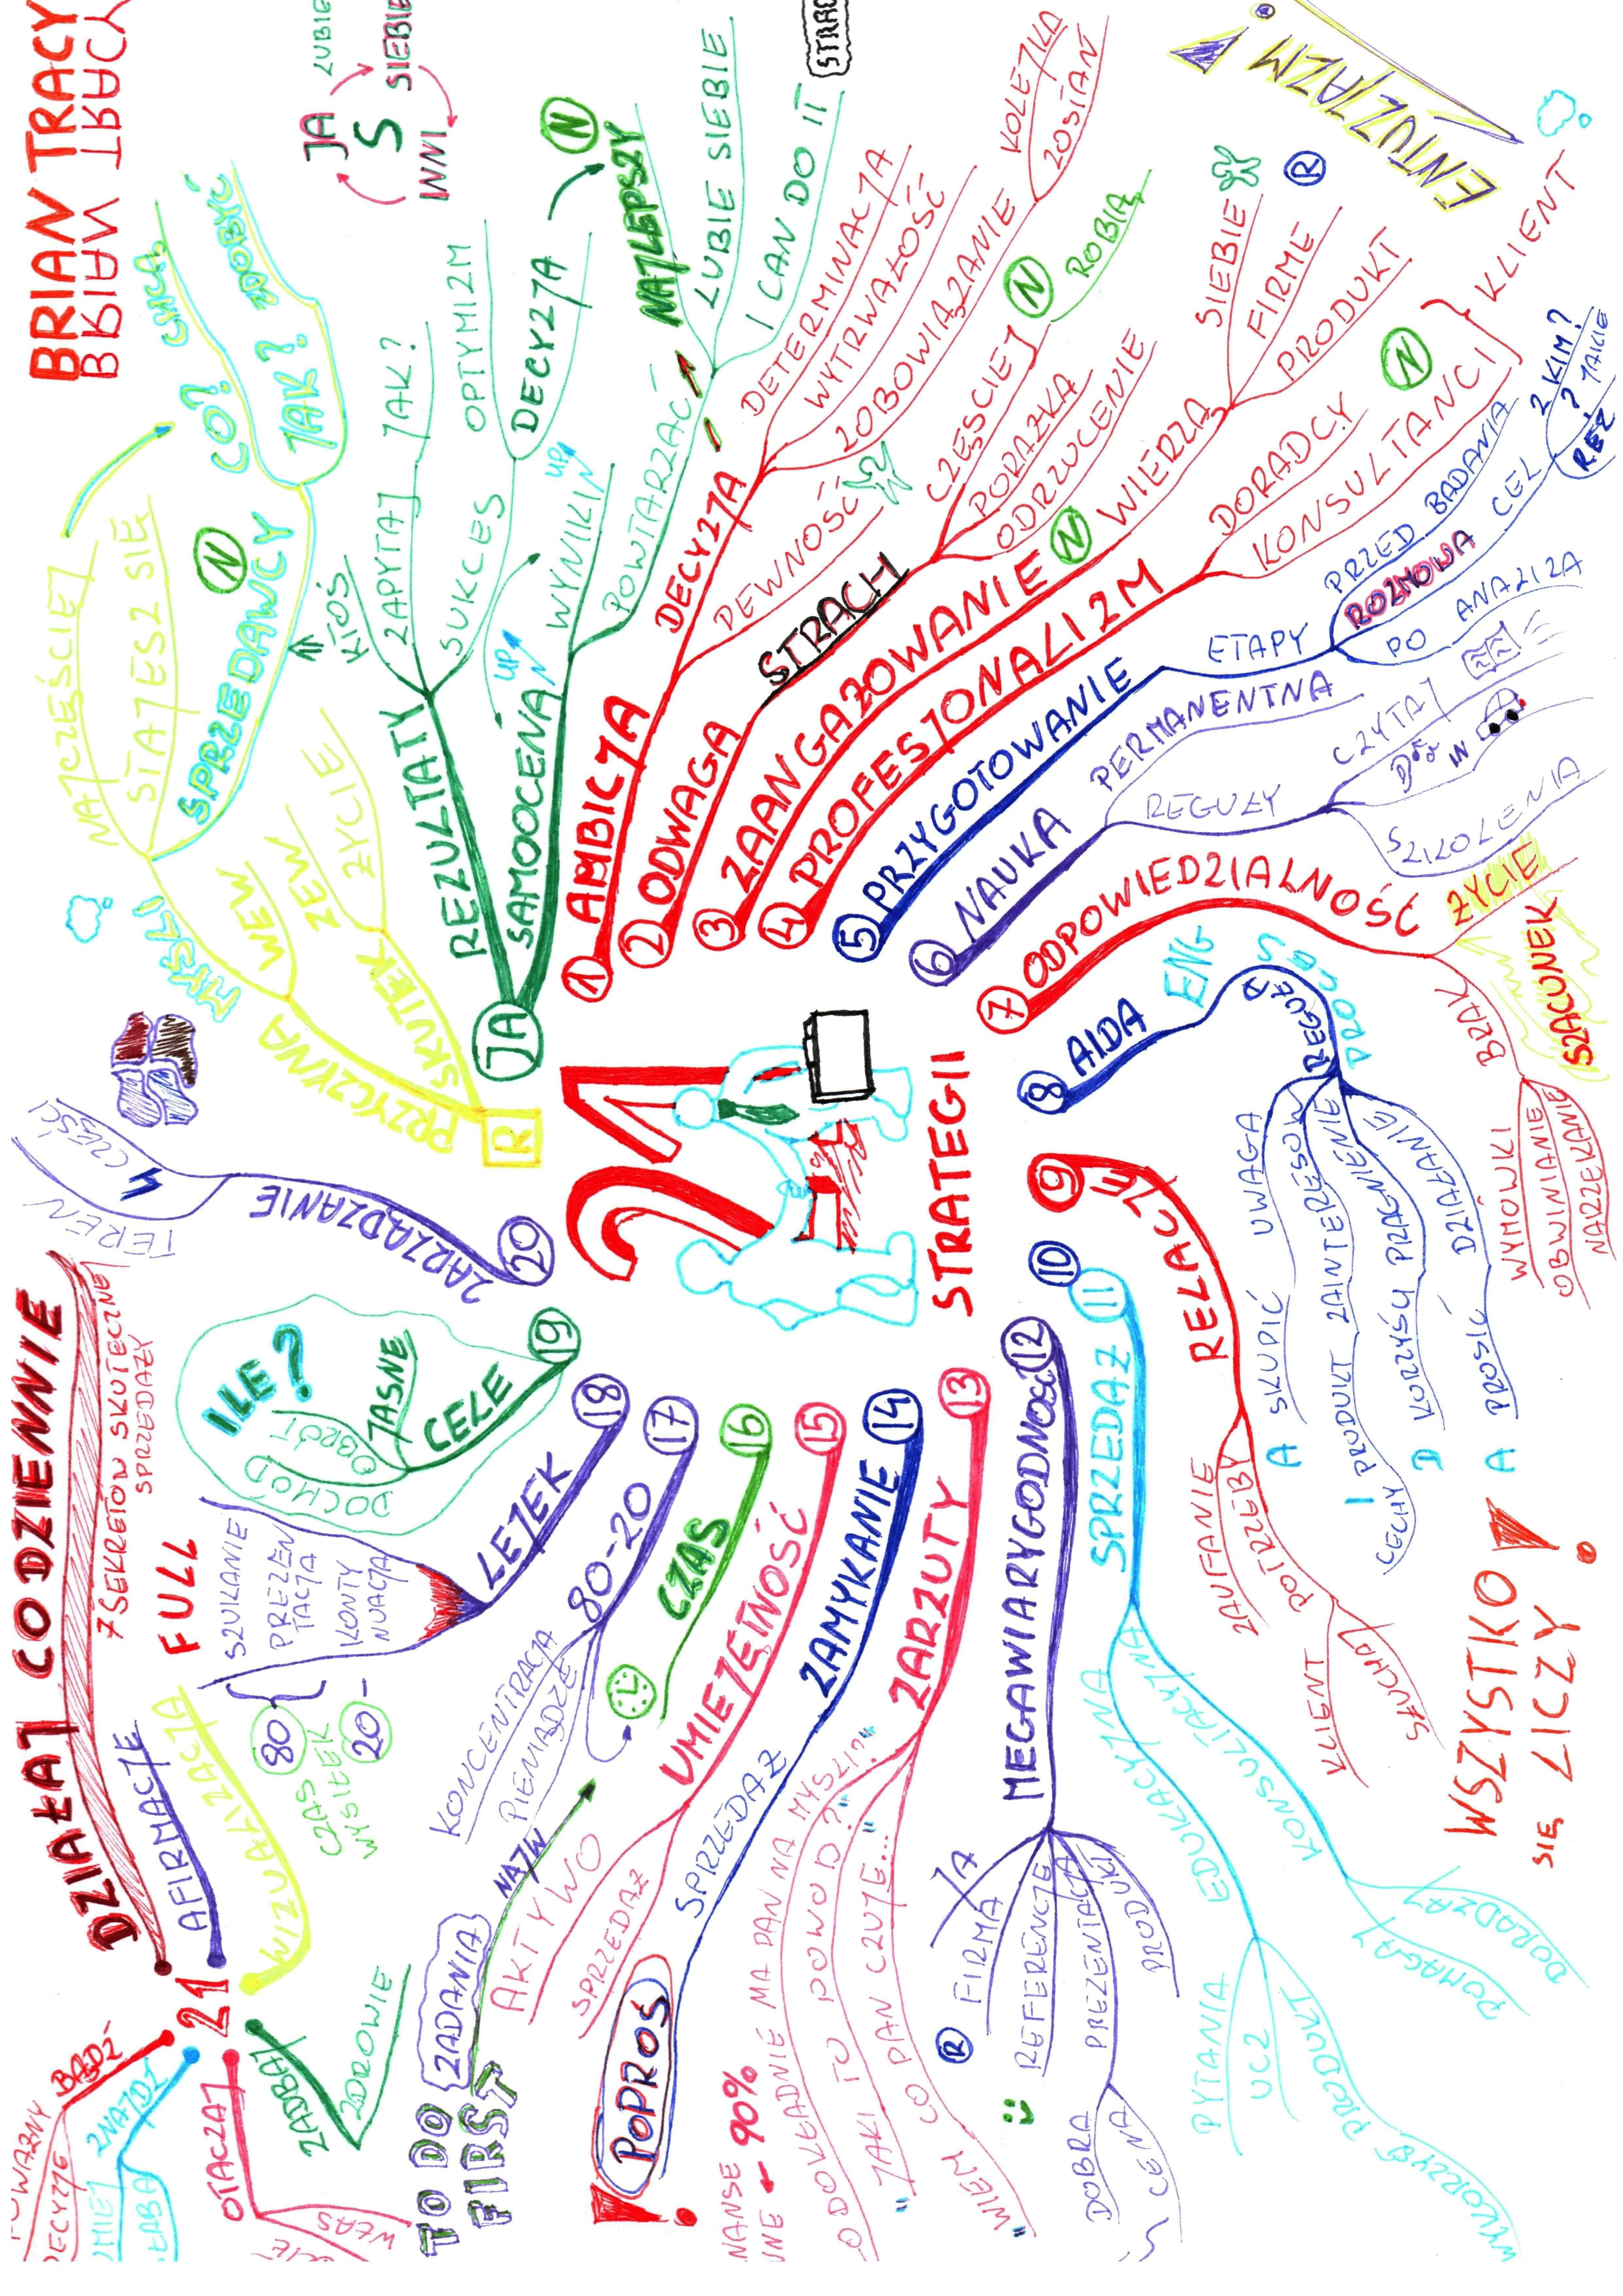 BRIAN TRACY
BRIAN TRACY
21
STRATEGII
JA
LUBIE
SIEBIE
INNI
S
R
PRZYCZYNA
SKUTEK
MYŚLI
WEW
ZEW
ŻYCIE
NAJCZĘŚCIEJ
STAJESZ SIĘ
SPRZEDAWCY
N
CO?
CHCĄ
JAK?
ZDOBYĆ
JA
REZULTATY
KTOŚ
ZAPYTAJ
JAK?
SUKCES
OPTYMIZM
DECYZJA
N
NAJLEPSZY
SAMOOCENA
UP
WYNIKI
UP
POWTARZAĆ
LUBIE SIEBIE
I CAN DO IT
1 AMBICJA
DECYZJA
DETERMINACJA
WYTRWAŁOŚĆ
ZOBOWIĄZANIE
KOLEJKA
ZOSTAŃ
PEWNOŚĆ
2 ODWAGA
STRACH
CZĘŚCIEJ
N
ROBIĄ
PORAŻKA
ODRZUCENIE
3 ZAANGAŻOWANIE
N
WIERZĄ
SIEBIE
FIRME
R
PRODUKT
4 PROFESJONALIZM
DORADCY
N
KONSULTANCI
KLIENT
ENTUZJAZM!
5 PRZYGOTOWANIE
ETAPY
PRZED BADANIA
ROZMOWA
CEL
Z KIM?
? JAKIE
REZ
PO
ANALIZA
6 NAUKA
PERMANENTNA
REGUŁY
CZYTAJ
IN
SZKOLENIA
7 ODPOWIEDZIALNOŚĆ
ŻYCIE
SZACUNEK
BRAK
WYMÓWKI
OBWINIANIE
NARZEKANIE
8 AIDA
ENG
REGUŁA
PROCES
UWAGA
ZAINTERESOW
PRAGNIENIE
DZIAŁANIE
A SKUPIĆ
I PRODUKT ZAINTERESOWANIE
CECHY
D KORZYŚCI PRAGNIENIE
A PROSIĆ DZIAŁANIE
9 RELACJE
ZAUFANIE
POTRZEBY
KLIENT
SŁUCHAJ
WSZYSTKO
SIĘ LICZY!
10
11
SPRZEDAŻ
EDUKACYJNA
PYTANIA
UCZ
PRODUKT
KONSULTACYJNA
POMAGAJ
DORADZAJ
12 MEGAWIARYGODNOŚĆ
JA
FIRMA
R
REFERENCJE
PREZENTACJA
PRODUKT
DOBRA
CENA
13 ZARZUTY
NANSE
90%
DOKŁADNIE MA PAN NA MYŚLI?"
"JAKI TO POWÓD?"
"WIEM CO PAN CZUJE..."
14 ZAMYKANIE
SPRZEDAŻ
POPROŚ
!
15 UMIEJĘTNOŚĆ
AKTYWO
SPRZEDAŻ
16 CZAS
NAJW
ZADANIA
TO DO
FIRST
17 80-20
KONCENTRACJA
PIENIĄDZE
18 LEJEK
SZUKANIE
PREZEN
TACJA
KONTY
NUACJA
FULL
80
CZAS
WYSIŁEK
20
19 CELE
JASNE
ILE?
OBRÓT
DOCHÓD
20 ZARZĄDZANIE
TEREN
4 CZĘŚCI
21
DZIAŁAJ CODZIENNIE
7 SEKRETÓW SKUTECZNEJ
SPRZEDAŻY
AFIRMACJE
WIZUALIZACJA
ZADBAJ
ZDROWIE
OTACZAJ
ZNAJDŹ
BĄDŹ
WAŻNY